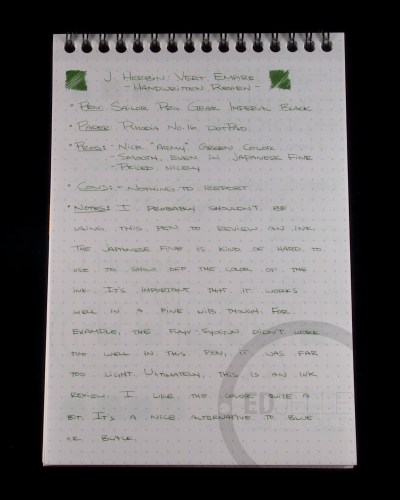 J. Herbin Vert Empire
- Handwritten Review -
• Pen: Sailor Pro Gear Imperial Black
• Paper: Rhodia No. 16 DotPad
• Pros: - Nice "Army" Green Color
- Smooth, Even in Japanese Fine
- Priced Nicely
• Cons: - Nothing to Report
• Notes: I probably shouldn't be
using this pen to review an ink.
The Japanese Fine is kind of hard to
use to show off the color of the
ink. It's important that it works
well in a fine nib, though. For
example, the Fuyu-Syogun didn't work
too well in this pen, it was far
too light. Ultimately, this is an ink
review. I like the color quite a
bit. It's a nice alternative to blue
or black.
ED